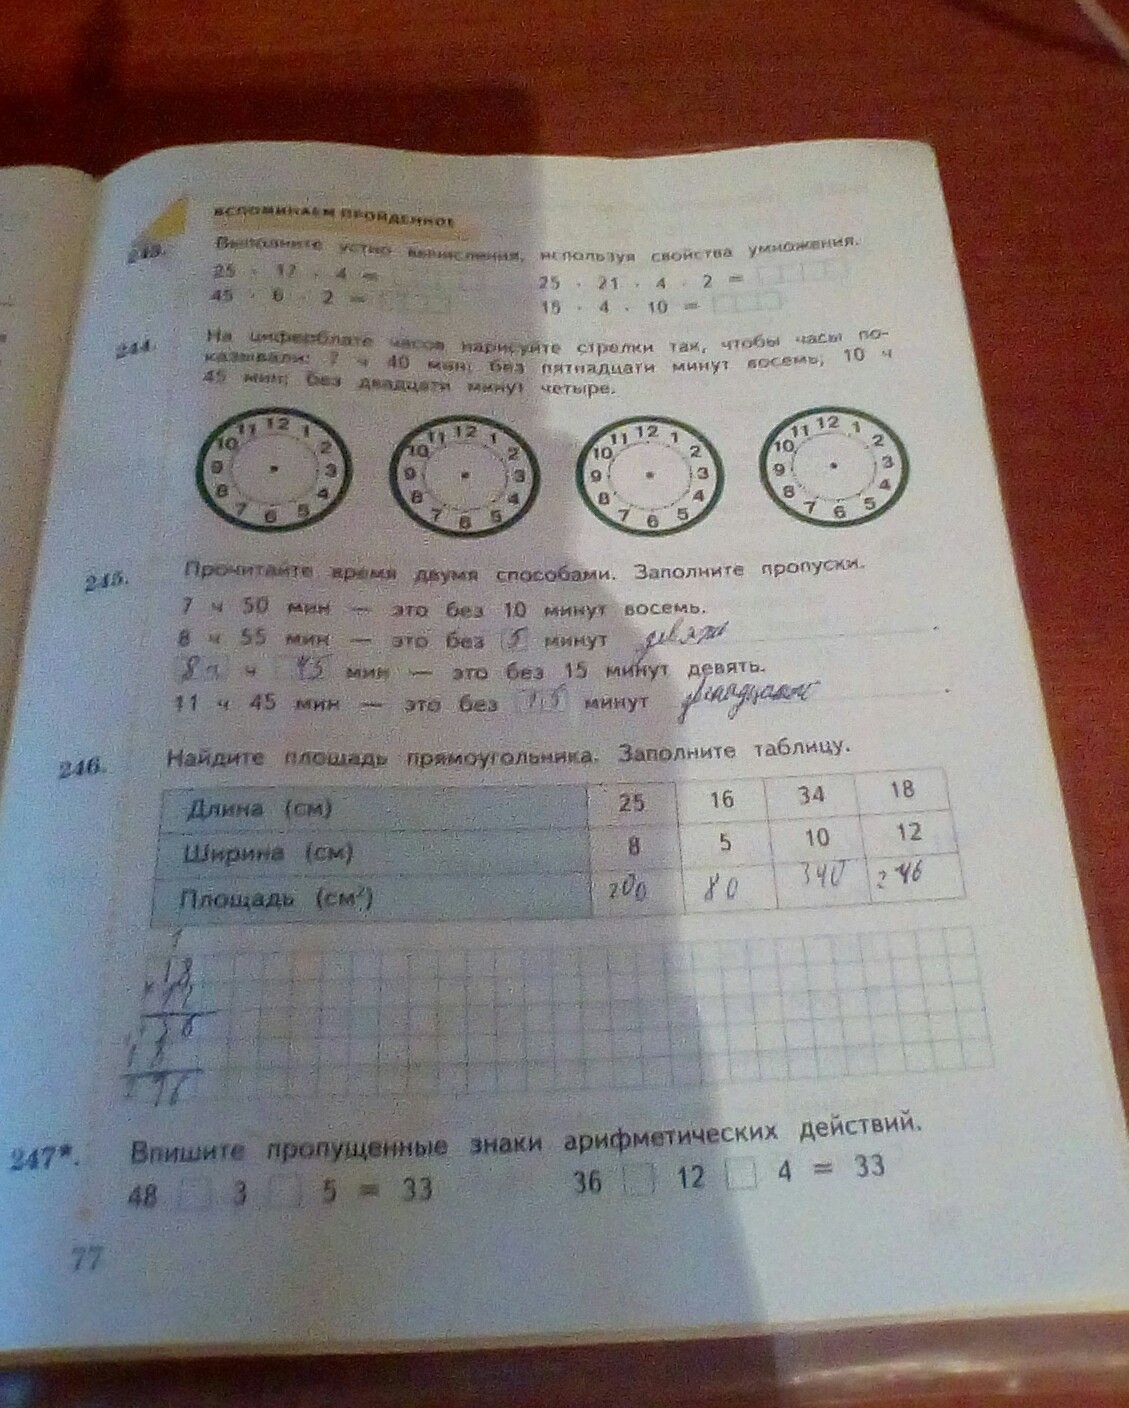 ВСПОМИНАЕМ ПРОЙДЕННОЕ
243. Выполните устно вычисления, используя свойства умножения.
25 · 17 · 4 = 25 · 21 · 4 · 2 =
45 · 6 · 2 = 15 · 4 · 10 =
244. На циферблате часов нарисуйте стрелки так, чтобы часы по-
казывали: 7 ч 40 мин; без пятнадцати минут восемь; 10 ч
45 мин; без двадцати минут четыре.
11 12 1 11 12 1 11 12 1 11 12 1
10 2 10 2 10 2 10 2
9 3 9 3 9 3 9 3
8 4 8 4 8 4 8 4
7 6 5 7 6 5 7 6 5 7 6 5
245. Прочитайте время двумя способами. Заполните пропуски.
7 ч 50 мин — это без 10 минут восемь.
8 ч 55 мин — это без 5 минут девять.
8 ч ч 45 мин — это без 15 минут девять.
11 ч 45 мин — это без 15 минут двенадцать.
246. Найдите площадь прямоугольника. Заполните таблицу.
Длина (см) 25 16 34 18
Ширина (см) 8 5 10 12
Площадь (см²) 200 80 340
1
18
× 12
36
18
247*. Впишите пропущенные знаки арифметических действий.
48 3 5 = 33 36 12 4 = 33
77